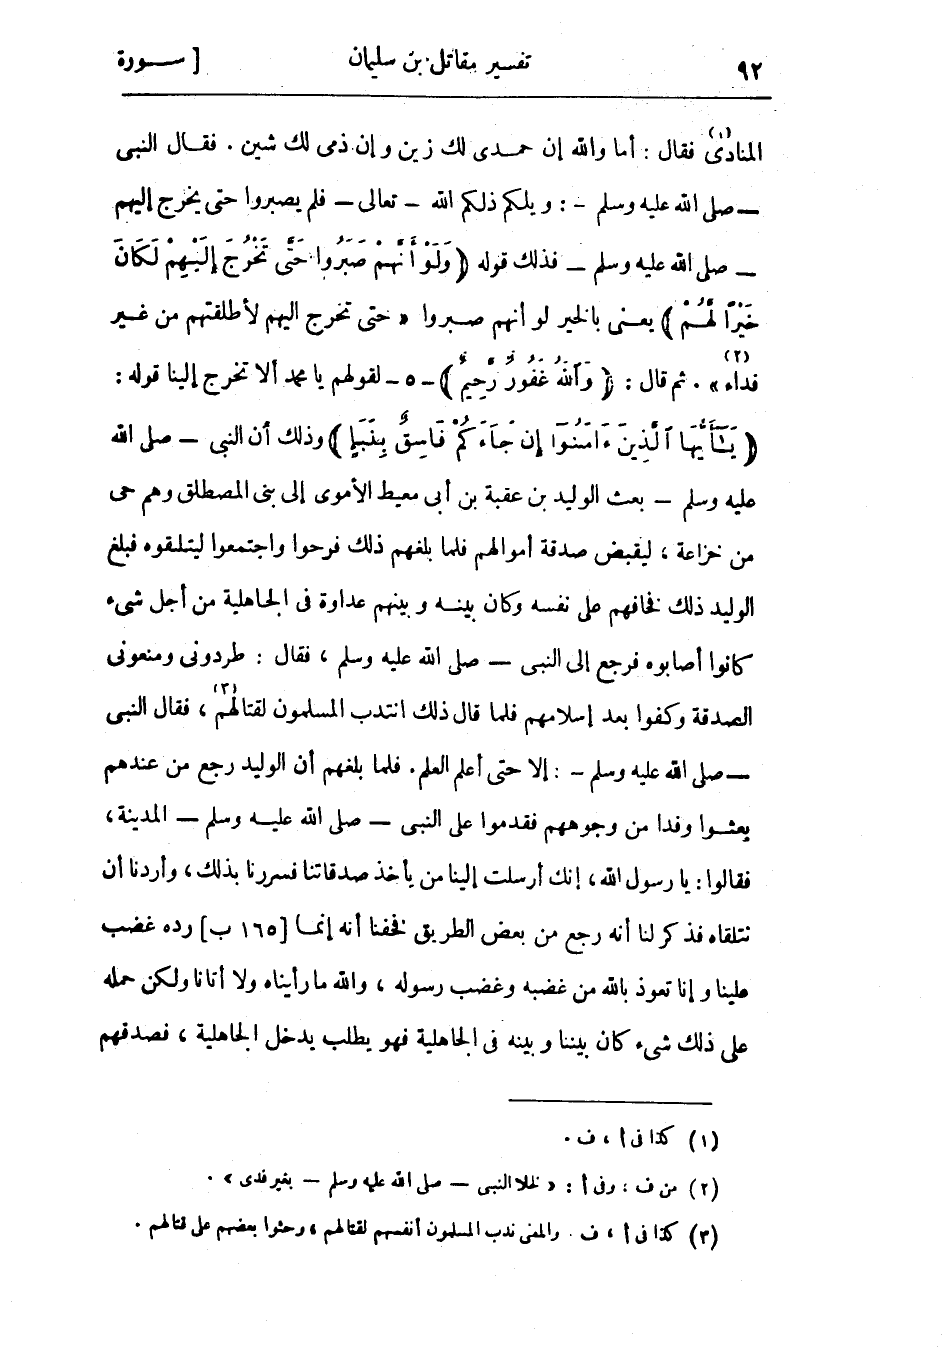 ٩٢ تفسير مقاتل بن سليمان [ ســورة
المنادى(١) فقال : أما والله إن حمـدى لك زين وإن ذمى لك شين . فقـال النبى
— صلى الله عليه وسلم — : ويلكم ذلكم الله — تعالى — فلم يصبروا حتى يخرج إليهم
— صلى الله عليه وسلم — فذلك قوله ﴿ وَلَوْ أَنَّهُمْ صَبَرُوا حَتَّى تَخْرُجَ إِلَيْهِمْ لَكَانَ
خَيْرًا لَّهُمْ ﴾ يعـنى بالخير لو أنهم صـبروا « حتى تخرج اليهم لأطلقتهم من غـير
فداء(٢) » . ثم قال : ﴿ وَٱللَّهُ غَفُورٌ رَّحِيمٌ ﴾ —٥— لقولهم يا محمد ألا تخرج إلينا قوله :
﴿ يَـٰٓأَيُّهَا ٱلَّذِينَ ءَامَنُوٓا إِن جَآءَكُمْ فَاسِقٌ بِنَبَإٍ ﴾ وذلك أن النبى — صلى الله
عليه وسلم — بعث الوليد بن عقبة بن أبى معيط الأموى إلى بنى المصطلق وهم حى
من خزاعة ، ليقبض صدقة أموالهم فلما بلغهم ذلك فرحوا واجتمعوا ليتلقوه فبلغ
الوليد ذلك فخافهم على نفسه وكان بينـه وبينهم عداوة فى الجاهلية من أجل شىء
كانوا أصابوه فرجع إلى النبى — صلى الله عليه وسلم ، فقال : طردونى ومنعونى
الصدقة وكفوا بعد إسلامهم فلما قال ذلك انتدب المسلمون لقتالهم(٣) ، فقال النبى
— صلى الله عليه وسلم — : إلا حتى أعلم العلم . فلما بلغهم أن الوليد رجع من عندهم
بعثـوا وفدا من وجوههم فقدموا على النبى — صلى الله عليـه وسلم — المدينة ،
فقالوا : يا رسول الله ، إنك أرسلت إلينا من يأخذ صدقاتنا فسررنا بذلك ، وأردنا أن
نتلقاه فذكر لنا أنه رجع من بعض الطريق فخفنا أنه إنمـا [ ١٦٥ ب ] رده غضب
علينا وإنا نعوذ بالله من غضبه وغضب رسوله ، والله ما رأيناه ولا أتانا ولكن حمله
على ذلك شىء كان بيننا وبينه فى الجاهلية فهو يطلب يدخل الجاهلية ، فصدقهم
(١) كذا فى أ ، ف .
(٢) من ف ، وفى أ : « لخلا النبى — صلى الله عليه وسلم — بغير فدى » .
(٣) كذا فى أ ، ف . والمعنى ندب المسلمون أنفسهم لقتالهم ، وحثوا بعضهم على قتالهم .